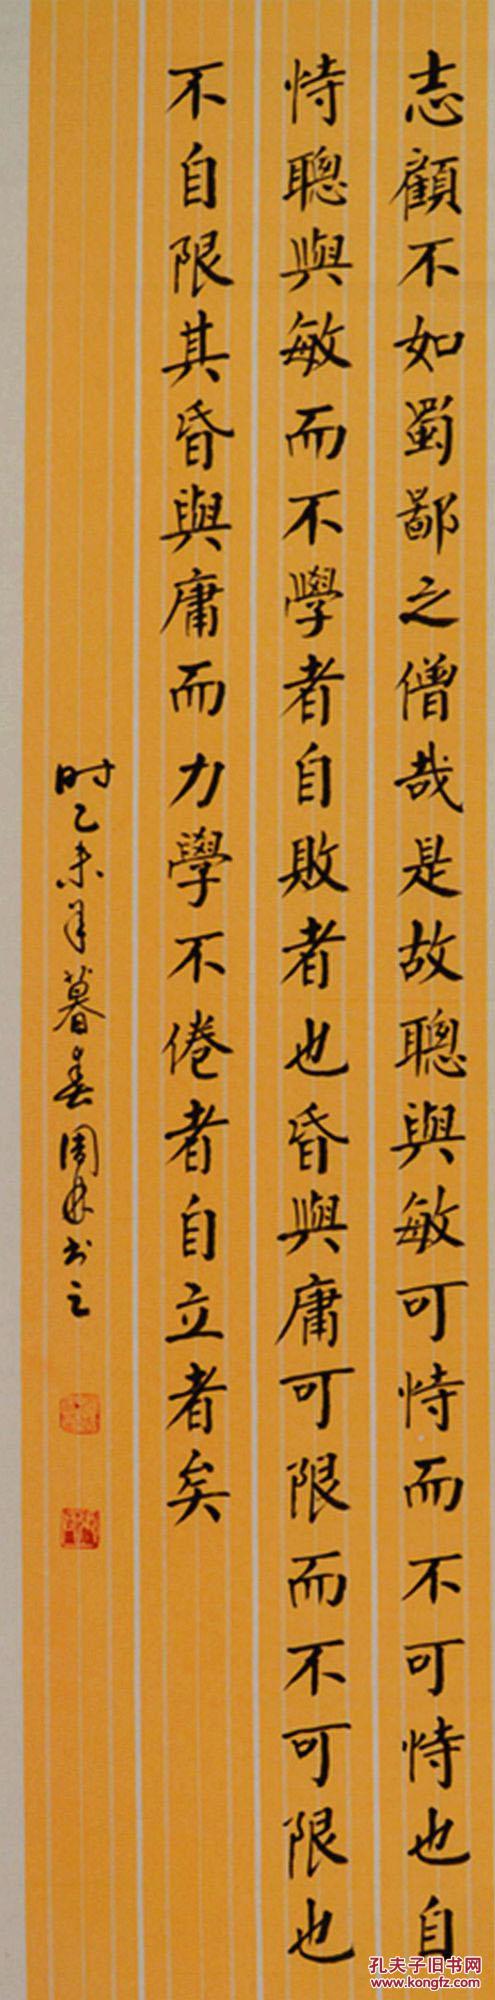 志顧不如蜀鄙之僧哉是故聰與敏可恃而不可恃也自
恃聰與敏而不學者自敗者也昏與庸可限而不可限也
不自限其昏與庸而力學不倦者自立者矣
时乙未年暮春周林书之
孔夫子旧书网
www.kongfz.com